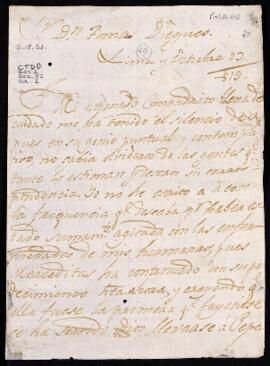 Sr. Dn. Tomas Dieguez
Lima y Octubre 23
819
Mi estimado Compadrito: llena de
cuidado me ha tenido el silencio de V.
pues en su genio puntual, y contempla
tivo, no cabia olvidarse de las gentes q.e
tanto lo estiman y decean su corres
pondencia. Yo no he escrito a V. con
la frequencia q.e deseaba p.r haber es
tado sumam.te agitada con las enfer
medades de mis hermanas, pues
Merceditas ha continuado con su pa
decimiento hta. ahora, y creyendo q.e
ella fuese la primera q.e falleciese
se ha servido Dios llevarse a Pepa